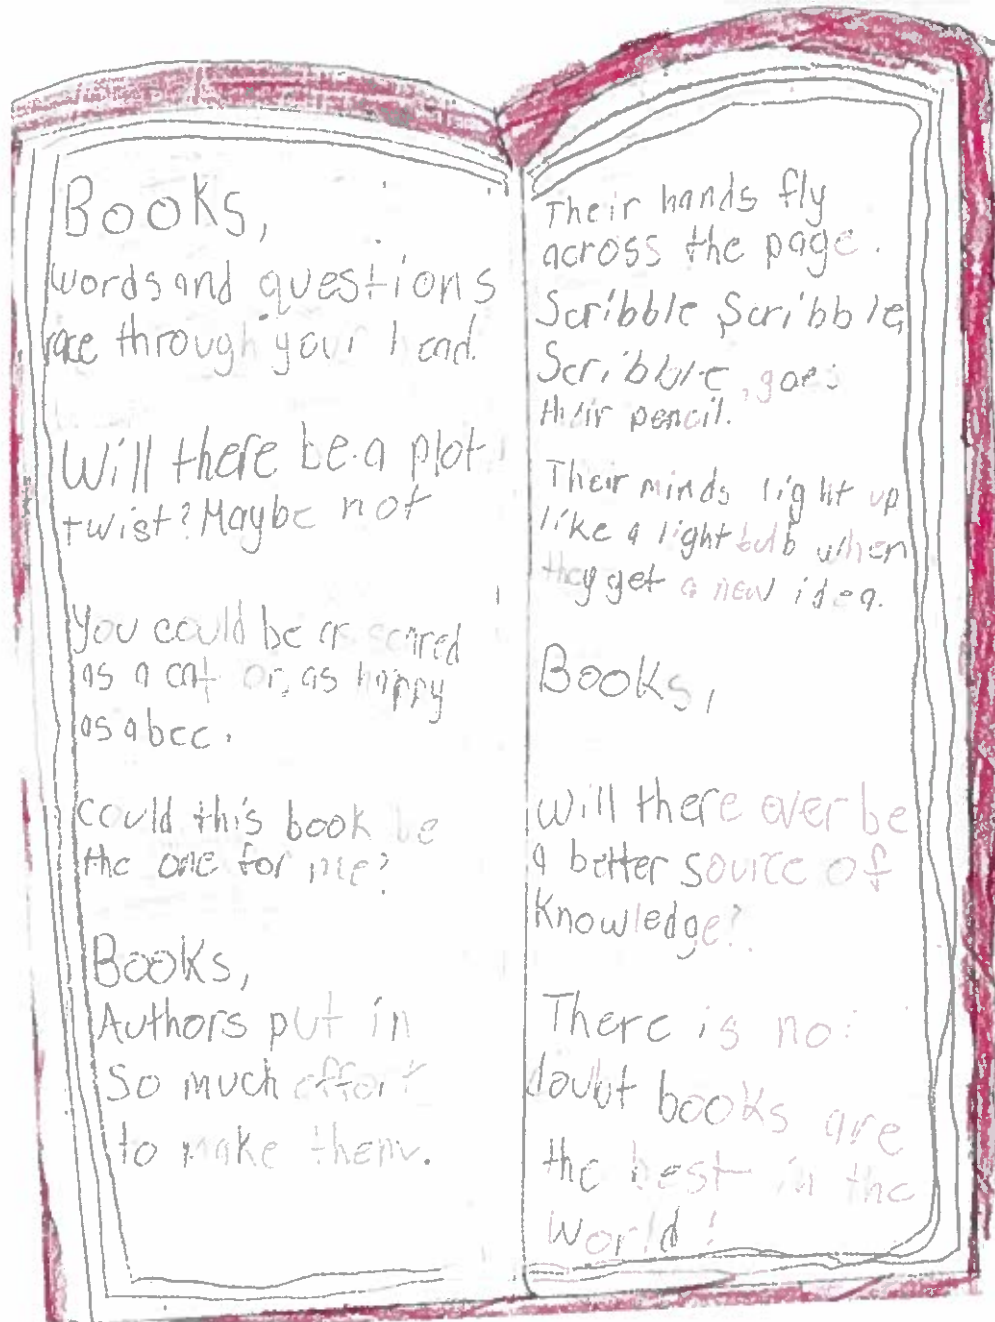 Books,
words and questions
race through your head.
Will there be a plot
twist? Maybe not
You could be as scared
as a cat or, as happy
as a bee.
Could this book be
the one for me?
Books,
Authors put in
so much effort
to make them.
Their hands fly
across the page.
Scribble Scribble,
Scribble, goes
their pencil.
Their minds light up
like a light bulb when
they get a new idea.
Books,
Will there ever be
a better source of
knowledge?
There is no
doubt books are
the best in the
World!